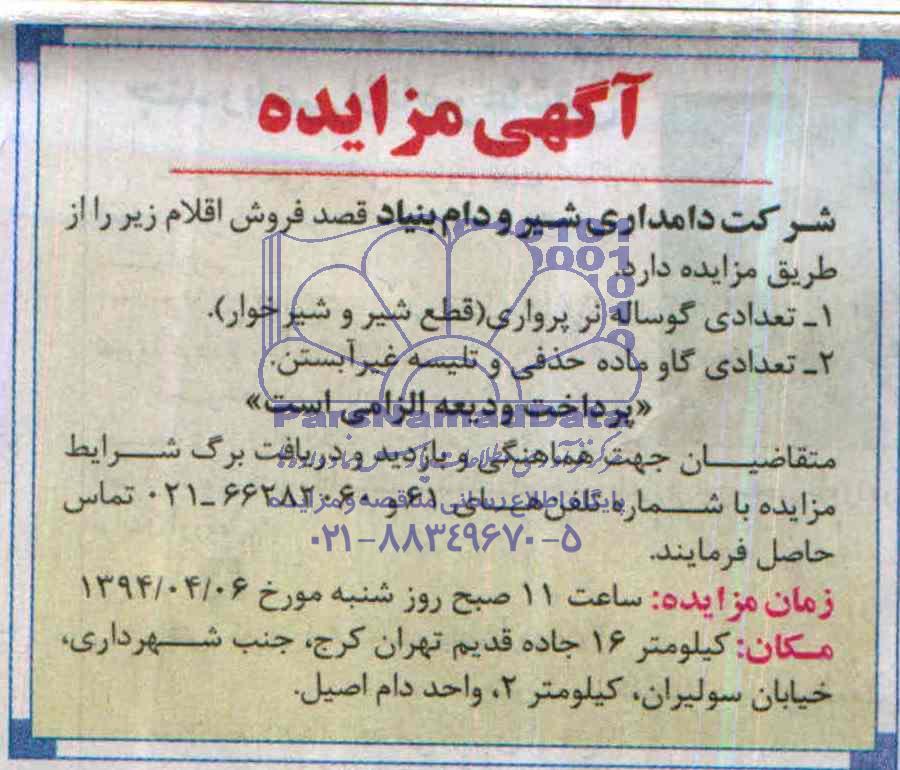 آگهی مزایده
شرکت دامداری شیر و دام بنیاد قصد فروش اقلام زیر را از
طریق مزایده دارد.
۱ـ تعدادی گوساله نر پرواری(قطع شیر و شیرخوار).
۲ـ تعدادی گاو ماده حذفی و تلیسه غیرآبستن.
«پرداخت ودیعه الزامی است»
ParsNamadData
متقاضیان جهت هماهنگی و بازدید و دریافت برگ شرایط
مزایده با شماره تلفن‌های ۶۱ و ۶۶۲۸۲۰۶۰ـ۰۲۱ تماس
پایگاه اطلاع رسانی مناقصه و مزایده
۰۲۱-۸۸۳۴۹۶۷۰-۵
حاصل فرمایند.
زمان مزایده: ساعت ۱۱ صبح روز شنبه مورخ ۱۳۹۴/۰۴/۰۶
مکان: کیلومتر ۱۶ جاده قدیم تهران کرج، جنب شهرداری،
خیابان سولیران، کیلومتر ۲، واحد دام اصیل.